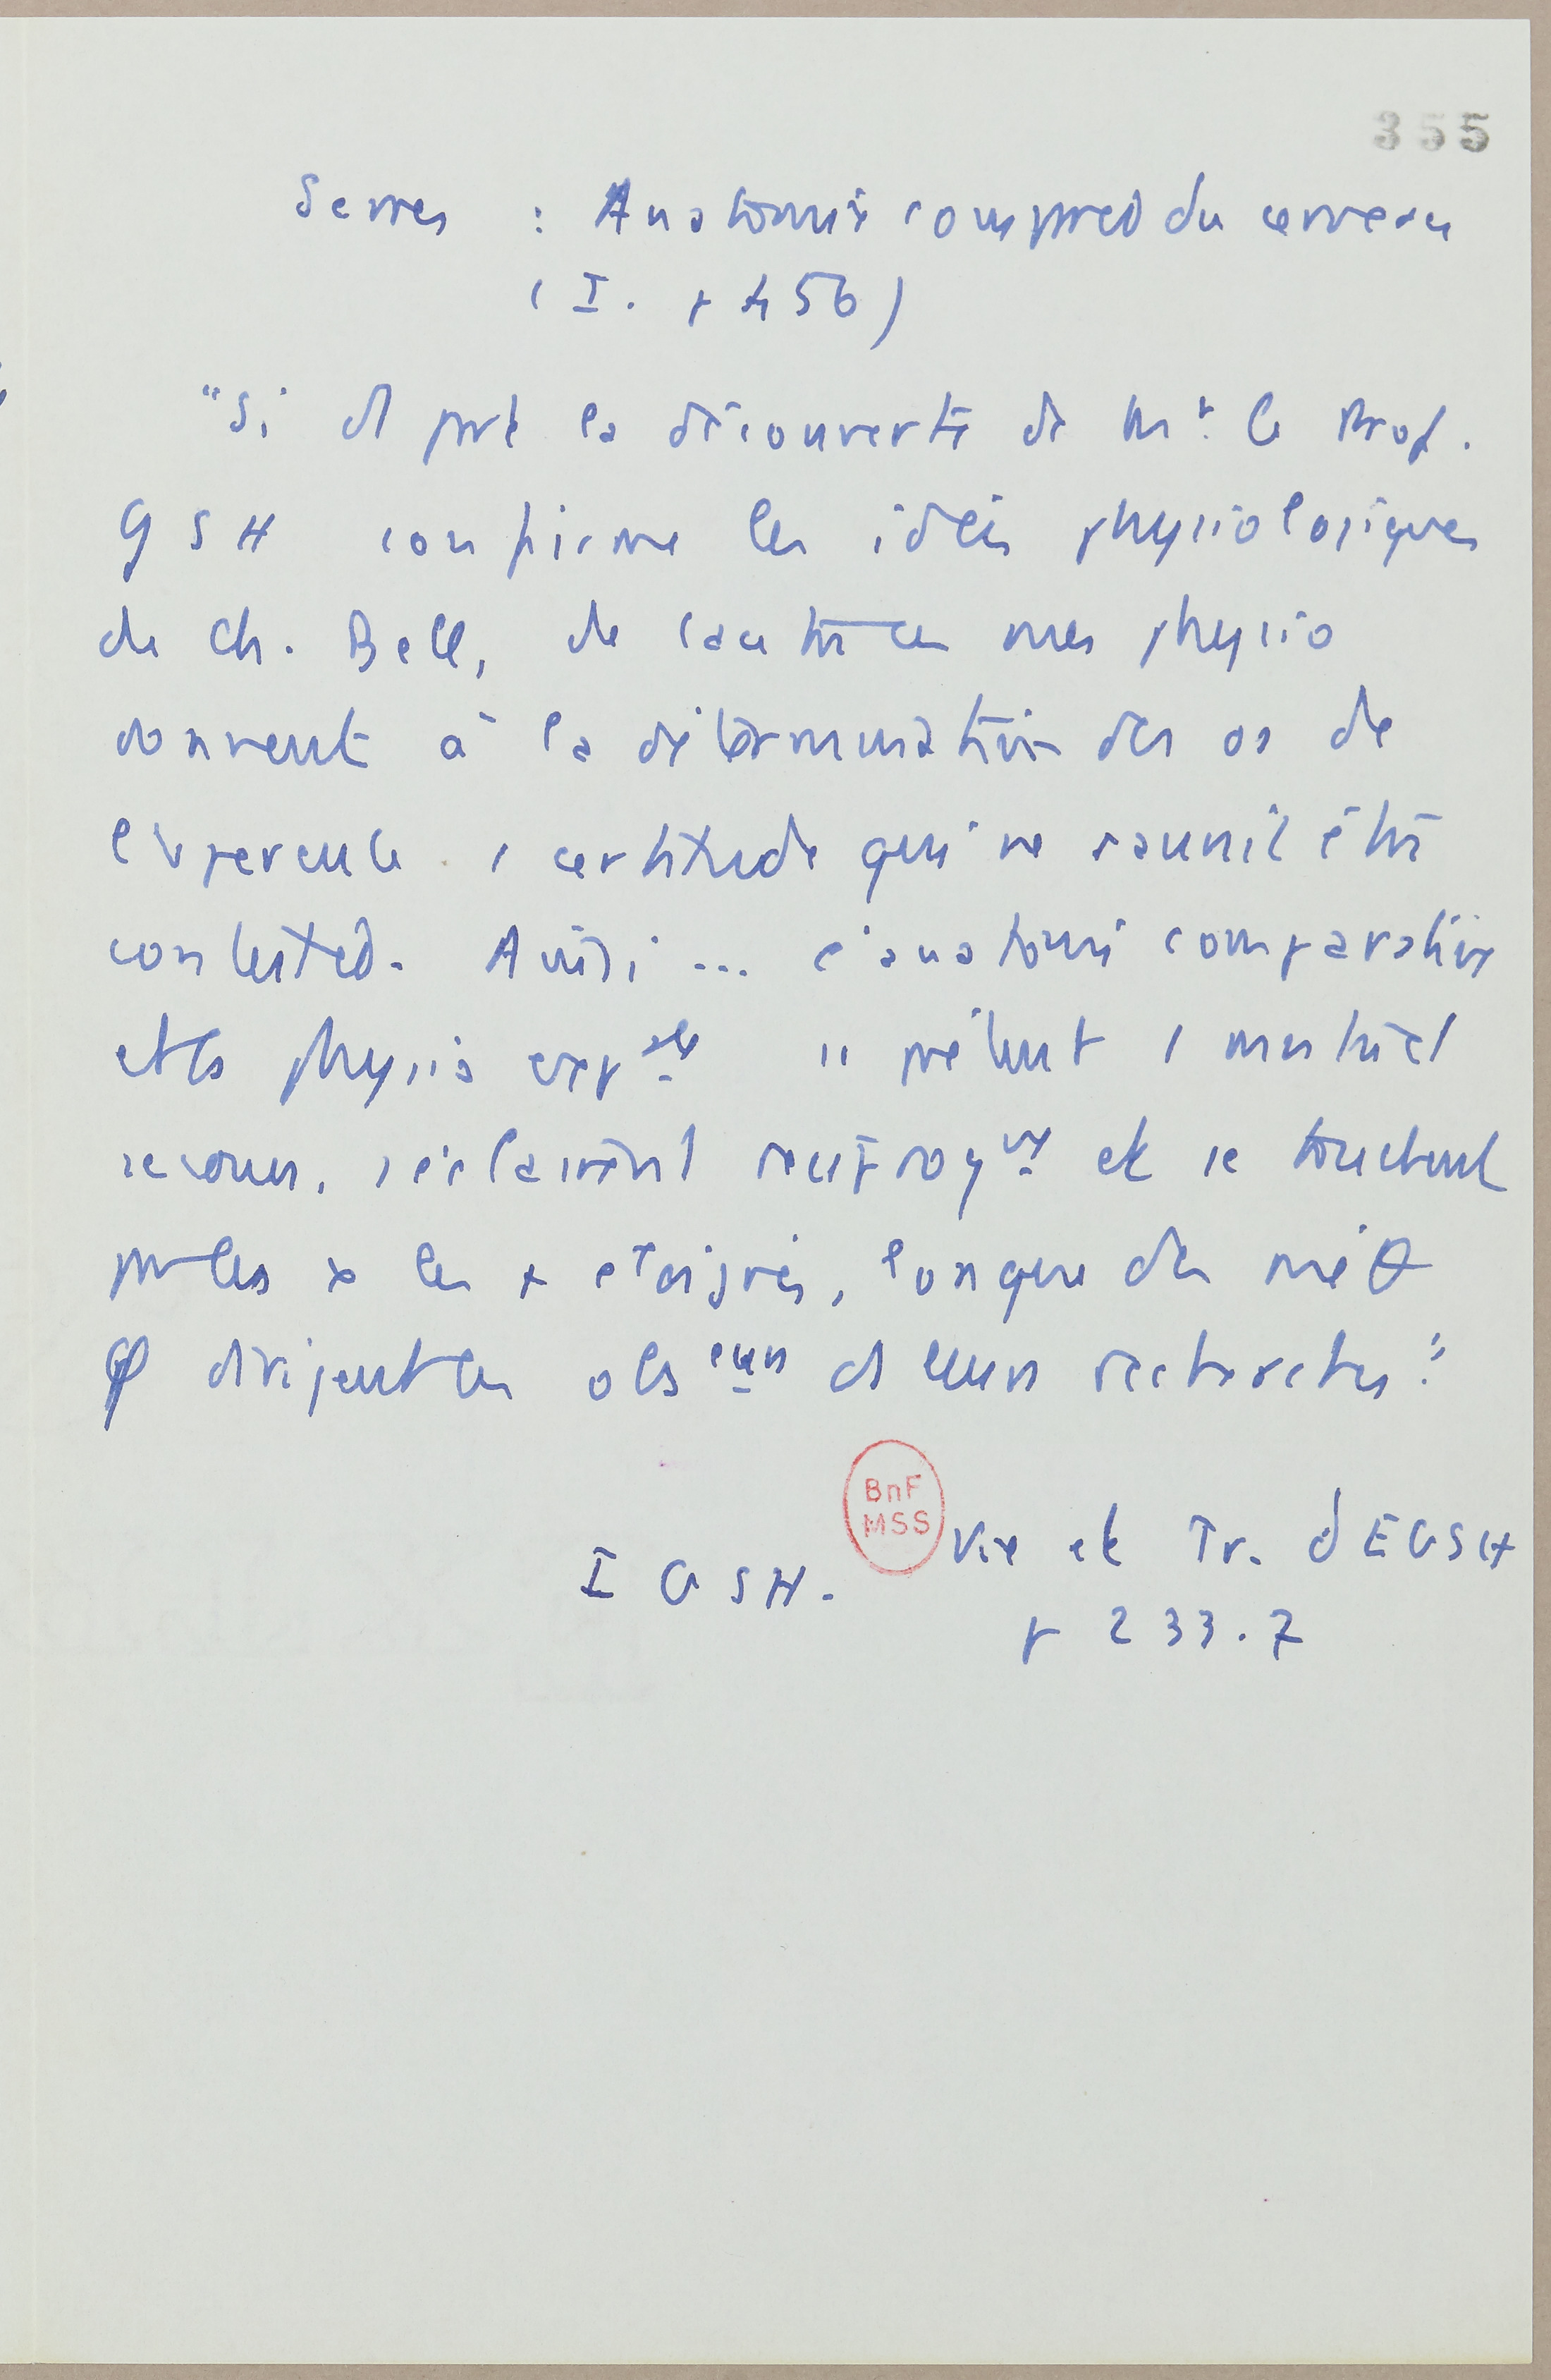 355
Serres : Anatomie comparée du cerveau
(I. p 456)
"Si d part la découverte de Mr. le Prof.
GSH confirme les idées physiologiques
de Ch. Bell, de l'autre ces vues physio
donnent à la détermination des os de
l'opercule 1 certitude qui ne saurait être
contestée. Ainsi ... l'anatomie comparative
et la physio expale se prêtent 1 mutuel
secours, s'éclairent réciproqvt et se touchent
par les pts les + éloignés, lorsque des mé
φ dirigent les obseurs ds leurs recherches."
BnF
MSS
I GSH.
Vie et Tr. d'EGSH
p 233.7